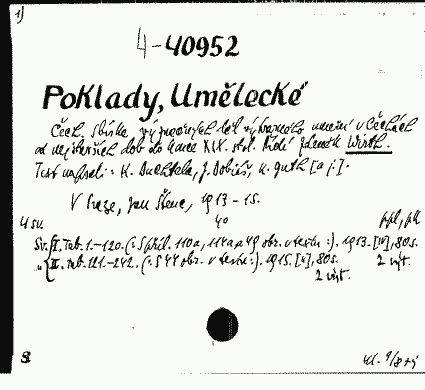 1)
4-40952
Poklady, Umělecké
Čech. Sbírka význačných děl výtvarného umění v Čechách
od nejstarších dob do konce XIX. stol. Řídí Zdeněk Wirth.
Text napsali: K. Buchtela, J. Dobiáš, K. Guth [a j.].
V Praze, Jan Štenc, 1913-15.
4 sv. 40 ppl, pk
Sv. I. Tab. 1.-120. (: S příl. 110a, 114a a 49 obr. v textu :). 1913. [IV], 80 s.
" II. Tab. 121.-242. (: S 44 obr. v textu :). 1915. [V], 80 s. 2 výt.
2 výt.
S